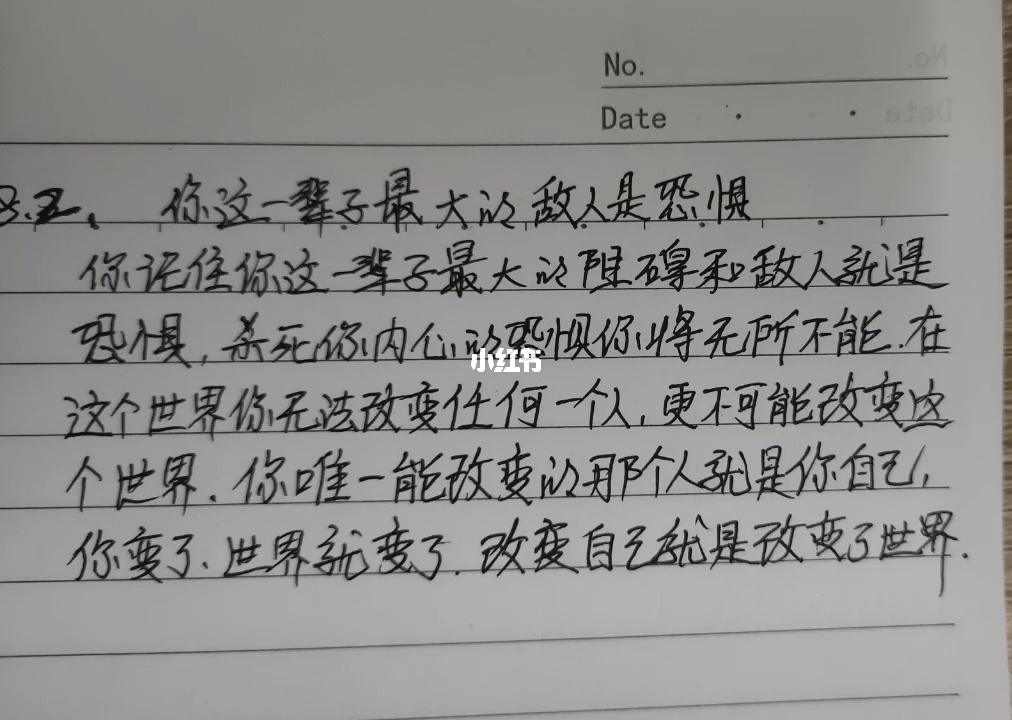 No.
Date
3.2、你这一辈子最大的敌人是恐惧
你记住你这一辈子最大的阻碍和敌人就是
恐惧,杀死你内心的恐惧你将无所不能.在
小红书
这个世界你无法改变任何一个人,更不可能改变这
个世界.你唯一能改变的那个人就是你自己,
你变了、世界就变了.改变自己就是改变了世界.